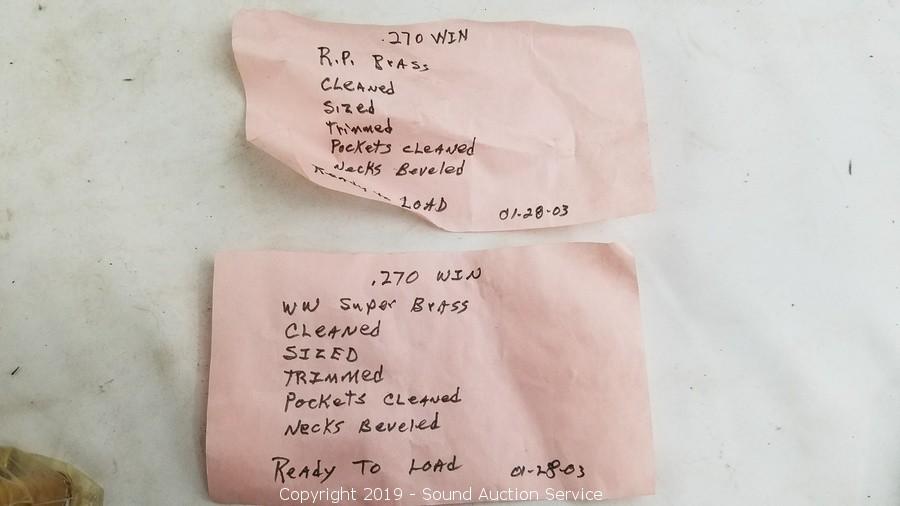 .270 WIN
R.P. Brass
CLEANed
Sized
Trimmed
Pockets cLEANed
Necks Beveled
Ready to LOAD
01-28-03
.270 WIN
WW Super Brass
CLEANed
SIZED
TRIMMed
Pockets CLEANed
Necks Beveled
Ready To LOAD 01-28-03
Copyright 2019 - Sound Auction Service